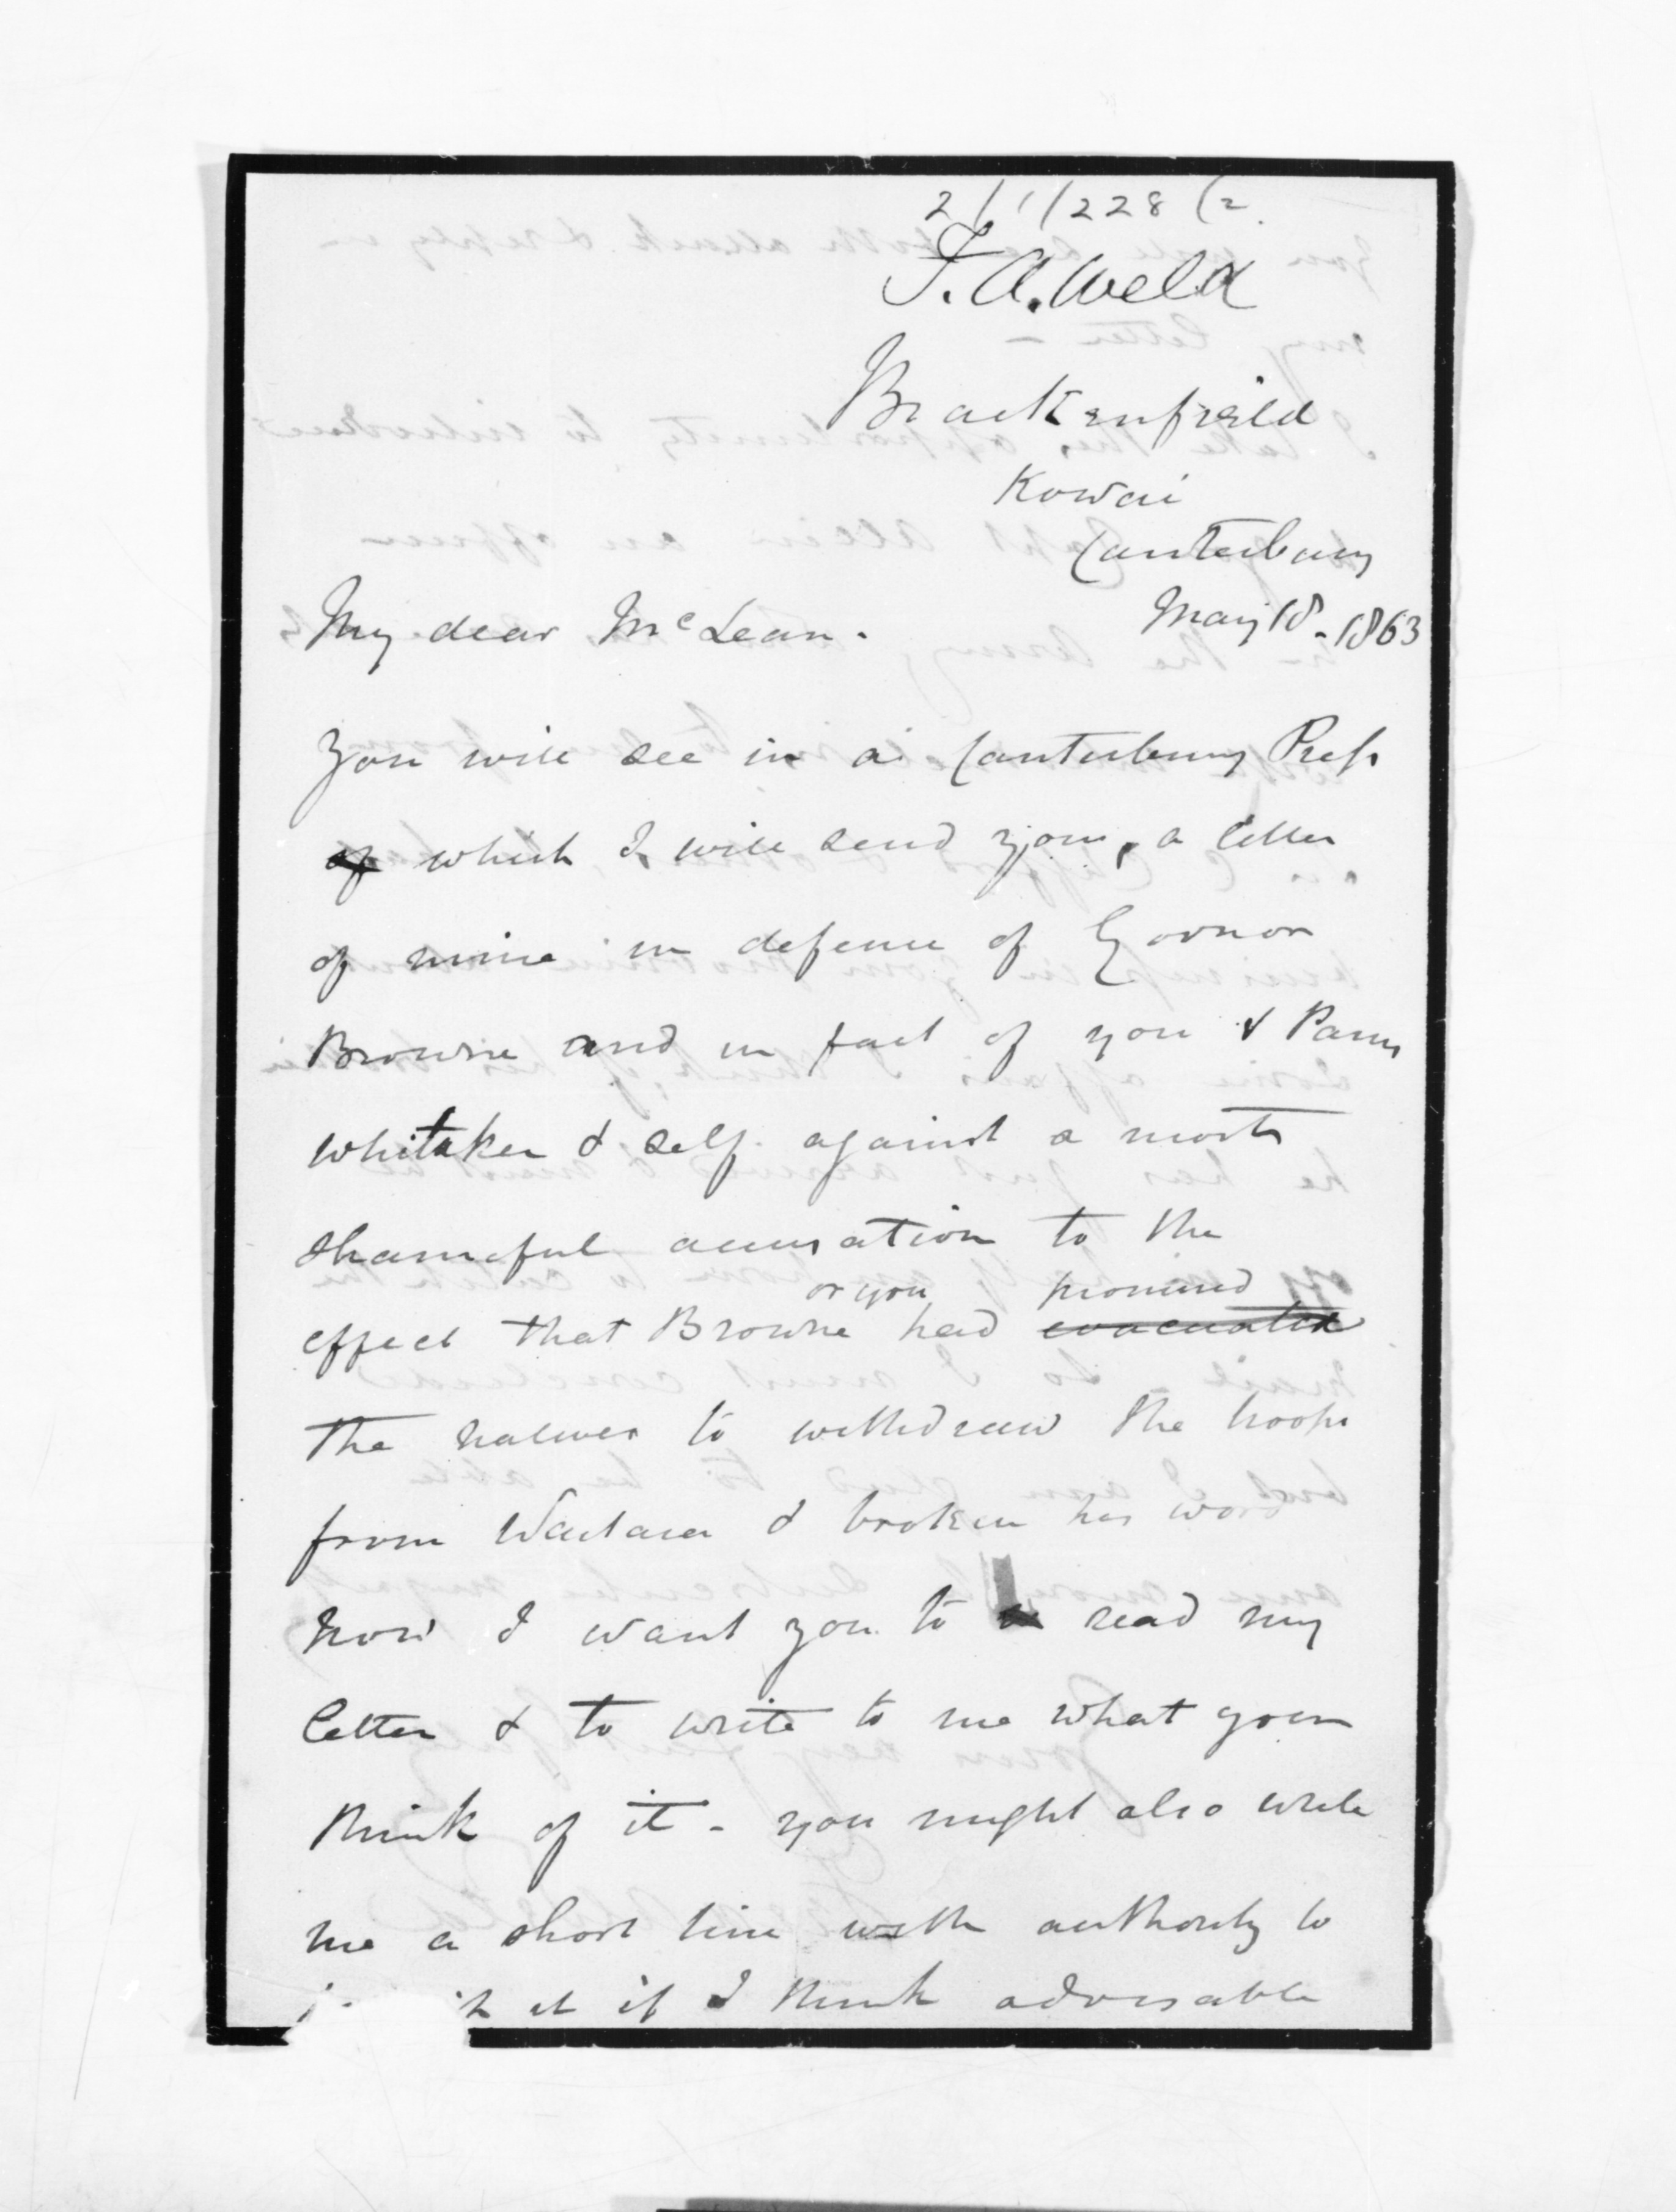 2/1/228 (2.
F. A. Weld
Brackenfield
Kowai
Canterbury
May 18 - 1863
My dear McLean.
You will see in a Canterbury Press
of which I will send you, a letter
of mine in defence of Govnor
Browne and in fact of you & Parris
Whitaker & self against a most
shameful accusation to the
or you promised
effect that Browne had evacuated
the natives to withdraw the troops
from Waitara & broken his word
now I want you to read my
letter & to write to me what you
think of it - you might also write
me a short line with authority to
it if I think advisable